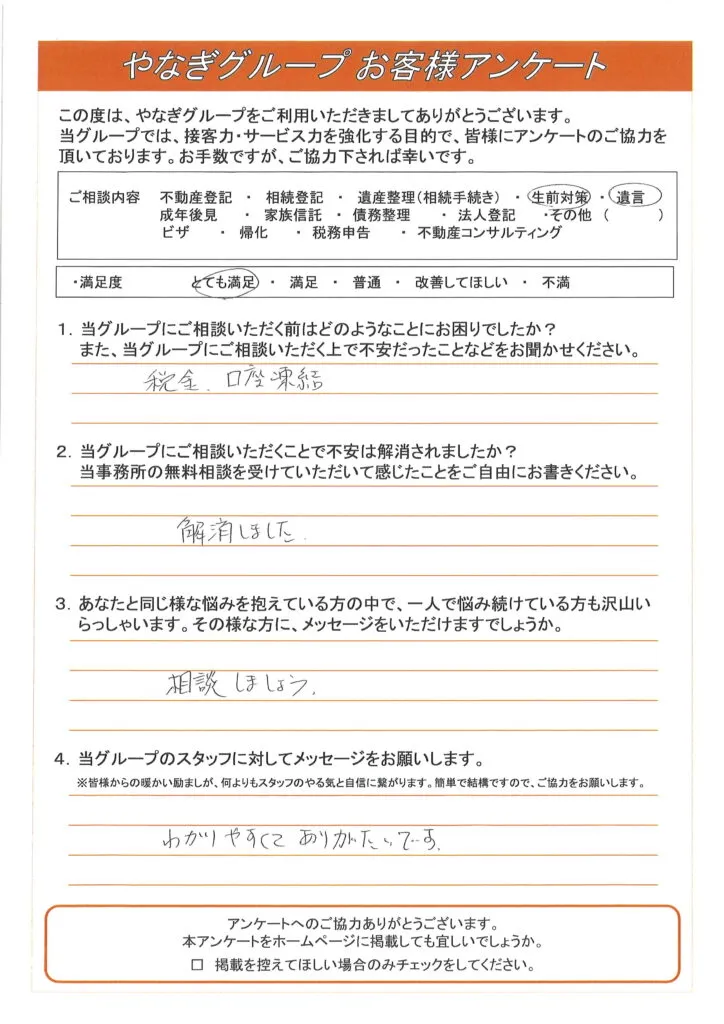 やなぎグループ お客様アンケート
この度は、やなぎグループをご利用いただきましてありがとうございます。
当グループでは、接客力・サービス力を強化する目的で、皆様にアンケートのご協力を
頂いております。お手数ですが、ご協力下されば幸いです。
ご相談内容 不動産登記 ・ 相続登記 ・ 遺産整理(相続手続き) ・ 生前対策 ・ 遺言
成年後見 ・ 家族信託 ・ 債務整理 ・ 法人登記 ・その他 ( )
ビザ ・ 帰化 ・ 税務申告 ・ 不動産コンサルティング
・満足度 とても満足 ・ 満足 ・ 普通 ・ 改善してほしい ・ 不満
1. 当グループにご相談いただく前はどのようなことにお困りでしたか?
また、当グループにご相談いただく上で不安だったことなどをお聞かせください。
税金、口座凍結
2. 当グループにご相談いただくことで不安は解消されましたか?
当事務所の無料相談を受けていただいて感じたことをご自由にお書きください。
解消しました.
3. あなたと同じ様な悩みを抱えている方の中で、一人で悩み続けている方も沢山い
らっしゃいます。その様な方に、メッセージをいただけますでしょうか。
相談しましょう.
4. 当グループのスタッフに対してメッセージをお願いします。
※皆様からの暖かい励ましが、何よりもスタッフのやる気と自信に繋がります。簡単で結構ですので、ご協力をお願いします。
わかりやすくて ありがたいです.
アンケートへのご協力ありがとうございます。
本アンケートをホームページに掲載しても宜しいでしょうか。
□ 掲載を控えてほしい場合のみチェックをしてください。